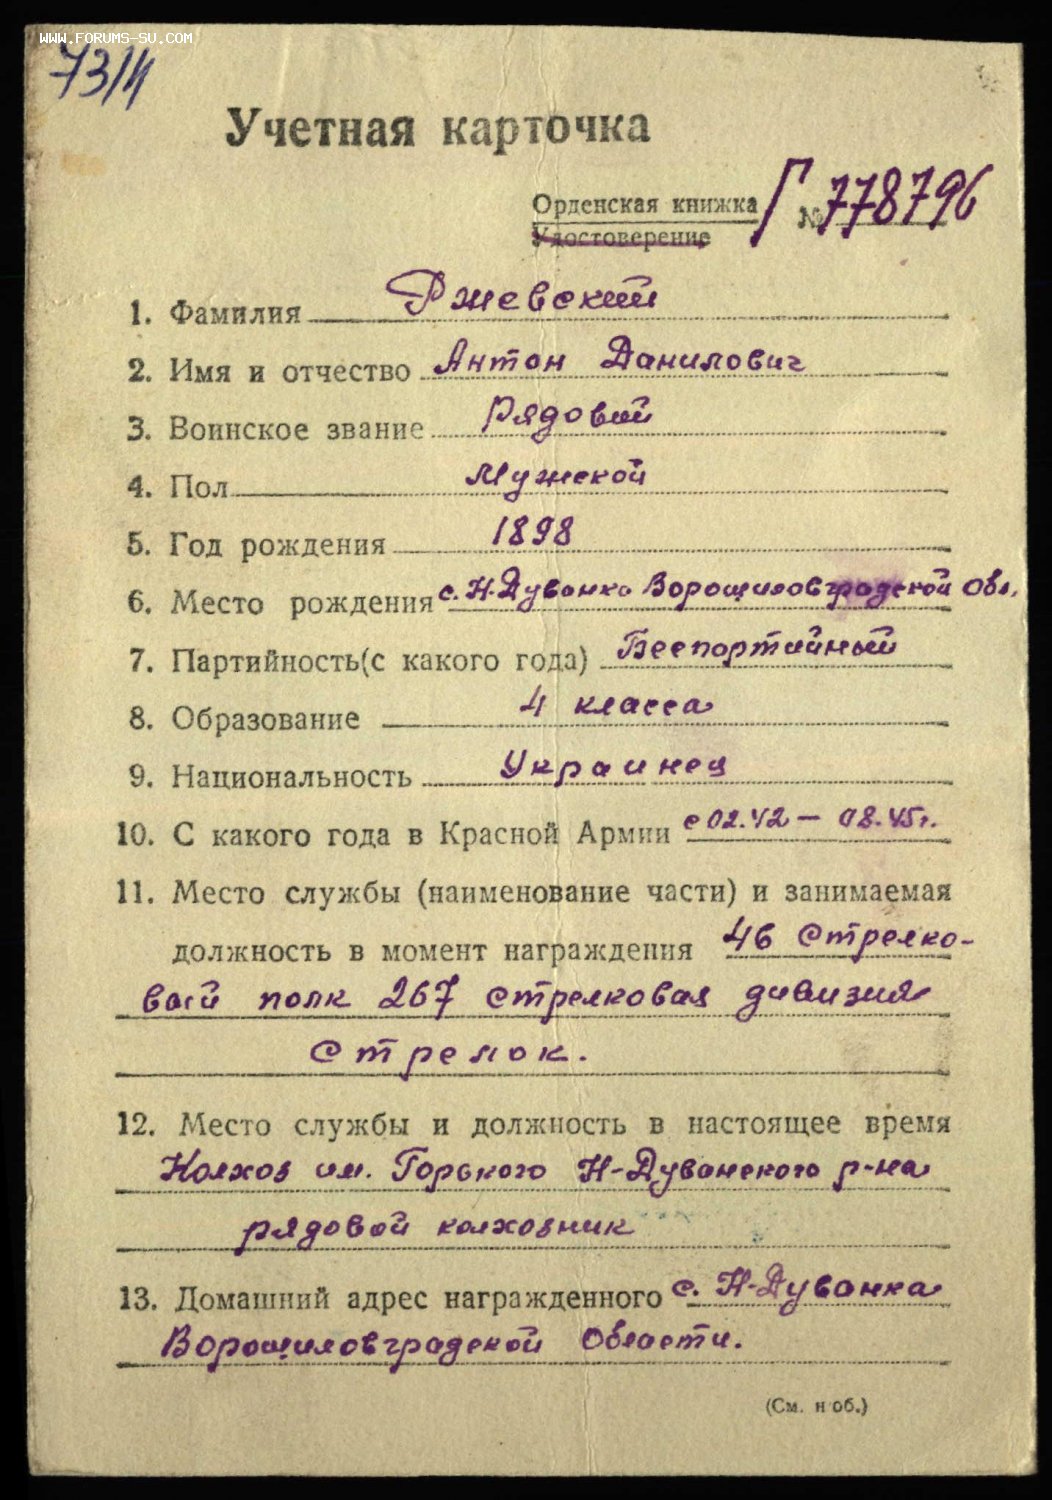 WWW.FORUMS-SU.COM
73/4
Учетная карточка
Орденская книжка Г № 778796
Удостоверение
1. Фамилия Ржевский
2. Имя и отчество Антон Данилович
3. Воинское звание Рядовой
4. Пол Мужской
5. Год рождения 1898
6. Место рождения с. Н-Дуванка Ворошиловградской Обл.
7. Партийность(с какого года) Беспартийный
8. Образование 4 класса
9. Национальность Украинец
10. С какого года в Красной Армии с 02.42 – 08.45г.
11. Место службы (наименование части) и занимаемая
должность в момент награждения 46 Стрелко-
вый полк 267 стрелковая дивизия
Стрелок.
12. Место службы и должность в настоящее время
Колхоз им. Горького Н-Дуванского р-на
рядовой колхозник
13. Домашний адрес награжденного с. Н-Дуванка
Ворошиловградской Области.
(См. н об.)